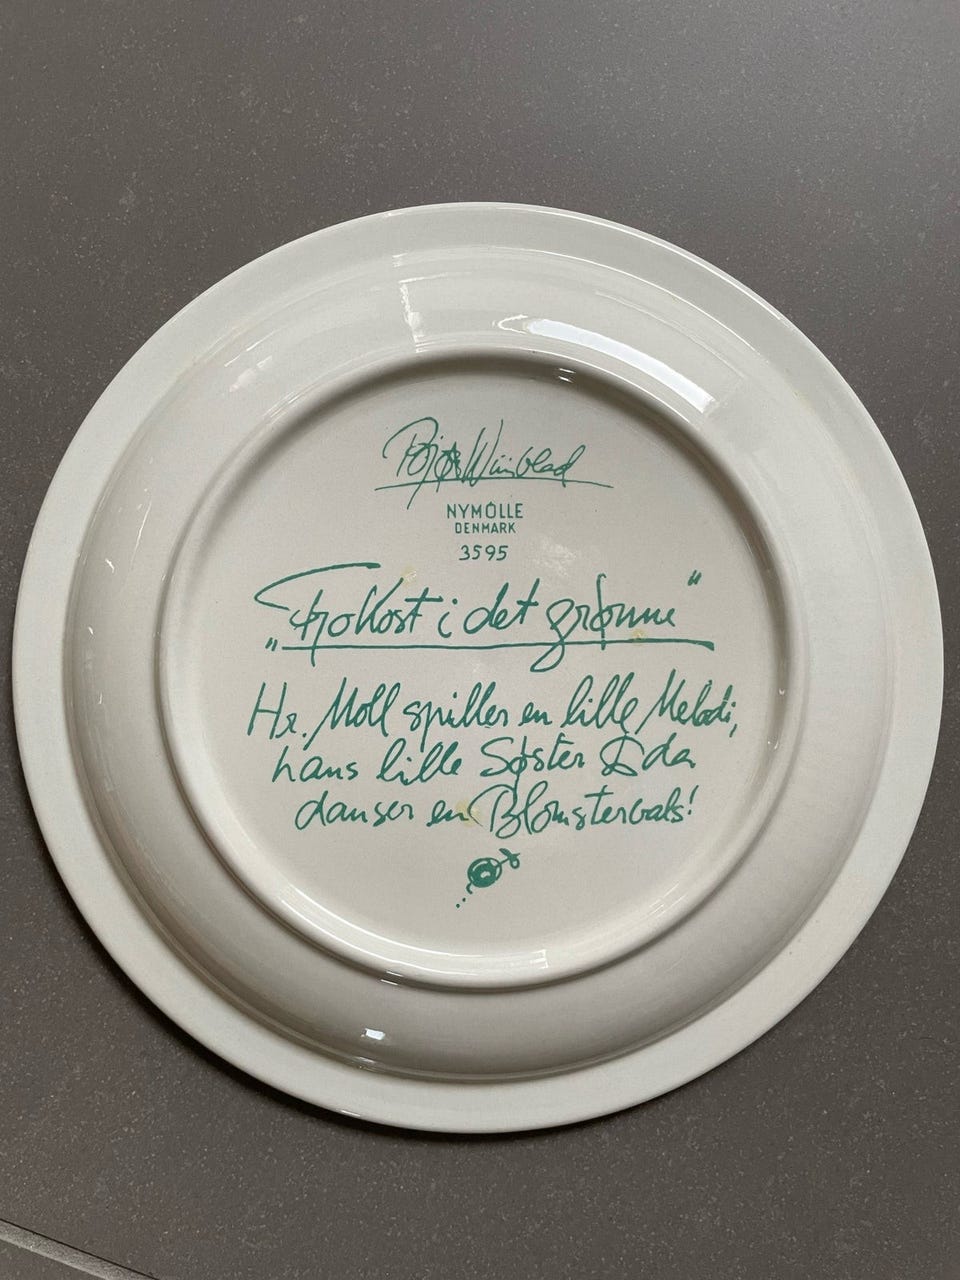 Bjørn Wiinblad
NYMÖLLE
DENMARK
3595
„Frokost i det grønne“
Hr. Moll spiller en lille Melodi,
hans lille Søster Ida
danser en Blomstervals!